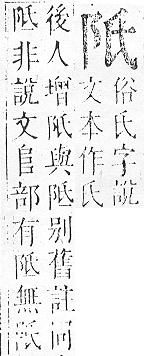 阺
俗氏字說
文本作氏
後人增阺與阺別舊註同
阺非說文𨸏部有阺無阺